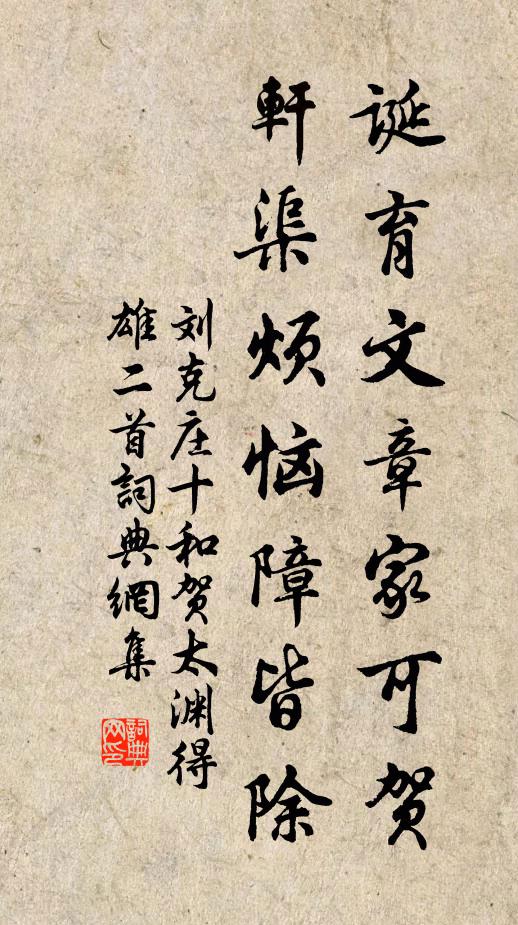 诞育文章家可贺
軒渠烦恼障皆除
刘克庄十和贺太渊得
雄二首詞典網集
詞典网印